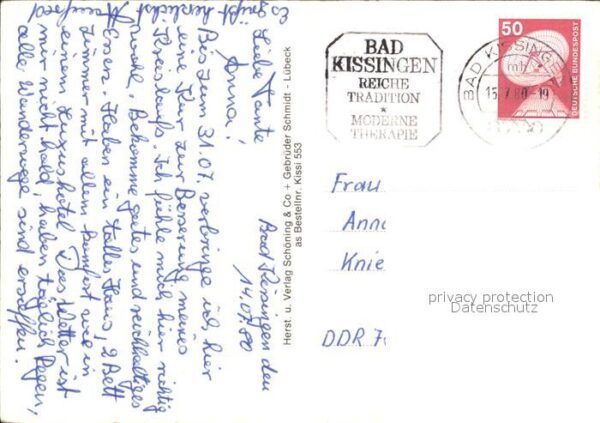 Bad Kissingen den
14.07.80
Liebe Tante
Anna!
Bis zum 31.07. verbringe ich hier
eine Kur zur Besserung meines
Kreislaufs. Ich fühle mich hier richtig
wohl. Bekomme gutes und reichhaltiges
Essen. Haben ein tolles Haus, 2 Bett
Zimmer mit allem Komfort wie in
einem Luxushotel. Das Wetter ist
mir nicht hold, haben täglich Regen,
alle Wanderwege sind ersoffen.
Es grüßt herzlichst
Herst. u. Verlag Schöning & Co + Gebrüder Schmidt - Lübeck
as Bestellnr. Kissi 553
BAD
KISSINGEN
REICHE
TRADITION
*
MODERNE
THERAPIE
BAD KISSINGEN
mb
15.7.80-19
50
DEUTSCHE BUNDESPOST
Frau
Anna
Knie
DDR 7
privacy protection
Datenschutz